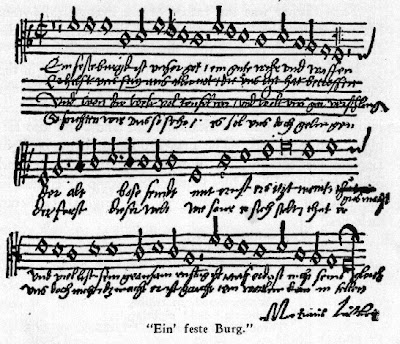 Ein feste burg ist unser got / ein gute wehr und waffen
Er hilft uns frey aus aller not die uns itzt hat betroffen
Und wen die welt vol teufel wer und wolt uns gar verschlingen
So furchten wir uns so sehr / es sol uns doch gelingen
der alt bose feindt mit ernst ers itzt meint
gros macht
der furst dieser welt wie saur er sich stelt
und viel list sein grausam rustung ist auf erd ist nicht seins gleich
uns doch nicht macht er ist gericht ein wortlin kan in fellen
Martinus Luther
"Ein' feste Burg."